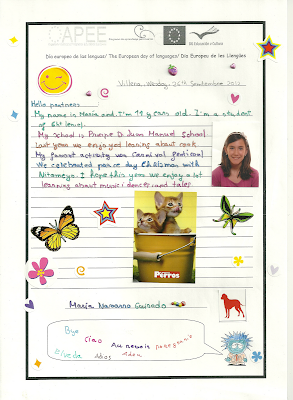 OAPEE
DG Educación y Cultura
Día europeo de las lenguas/ The European day of languages/ Dia Europeu de les Llengües
Villena, 26th September
Hello partners:
My name is María and I'm 11 years old. I'm a student
of 6th level.
My School is Principe D. Juan Manuel School.
Last year we enjoyed learning about cook.
My favorit activity was Carnival festival
We celebrated peace day Chrismas with
I hope this year we enjoy a lot
learning about music, dances and tales
Perros
María Navarro
Bye
Ciao Au revoir
adios Adeu